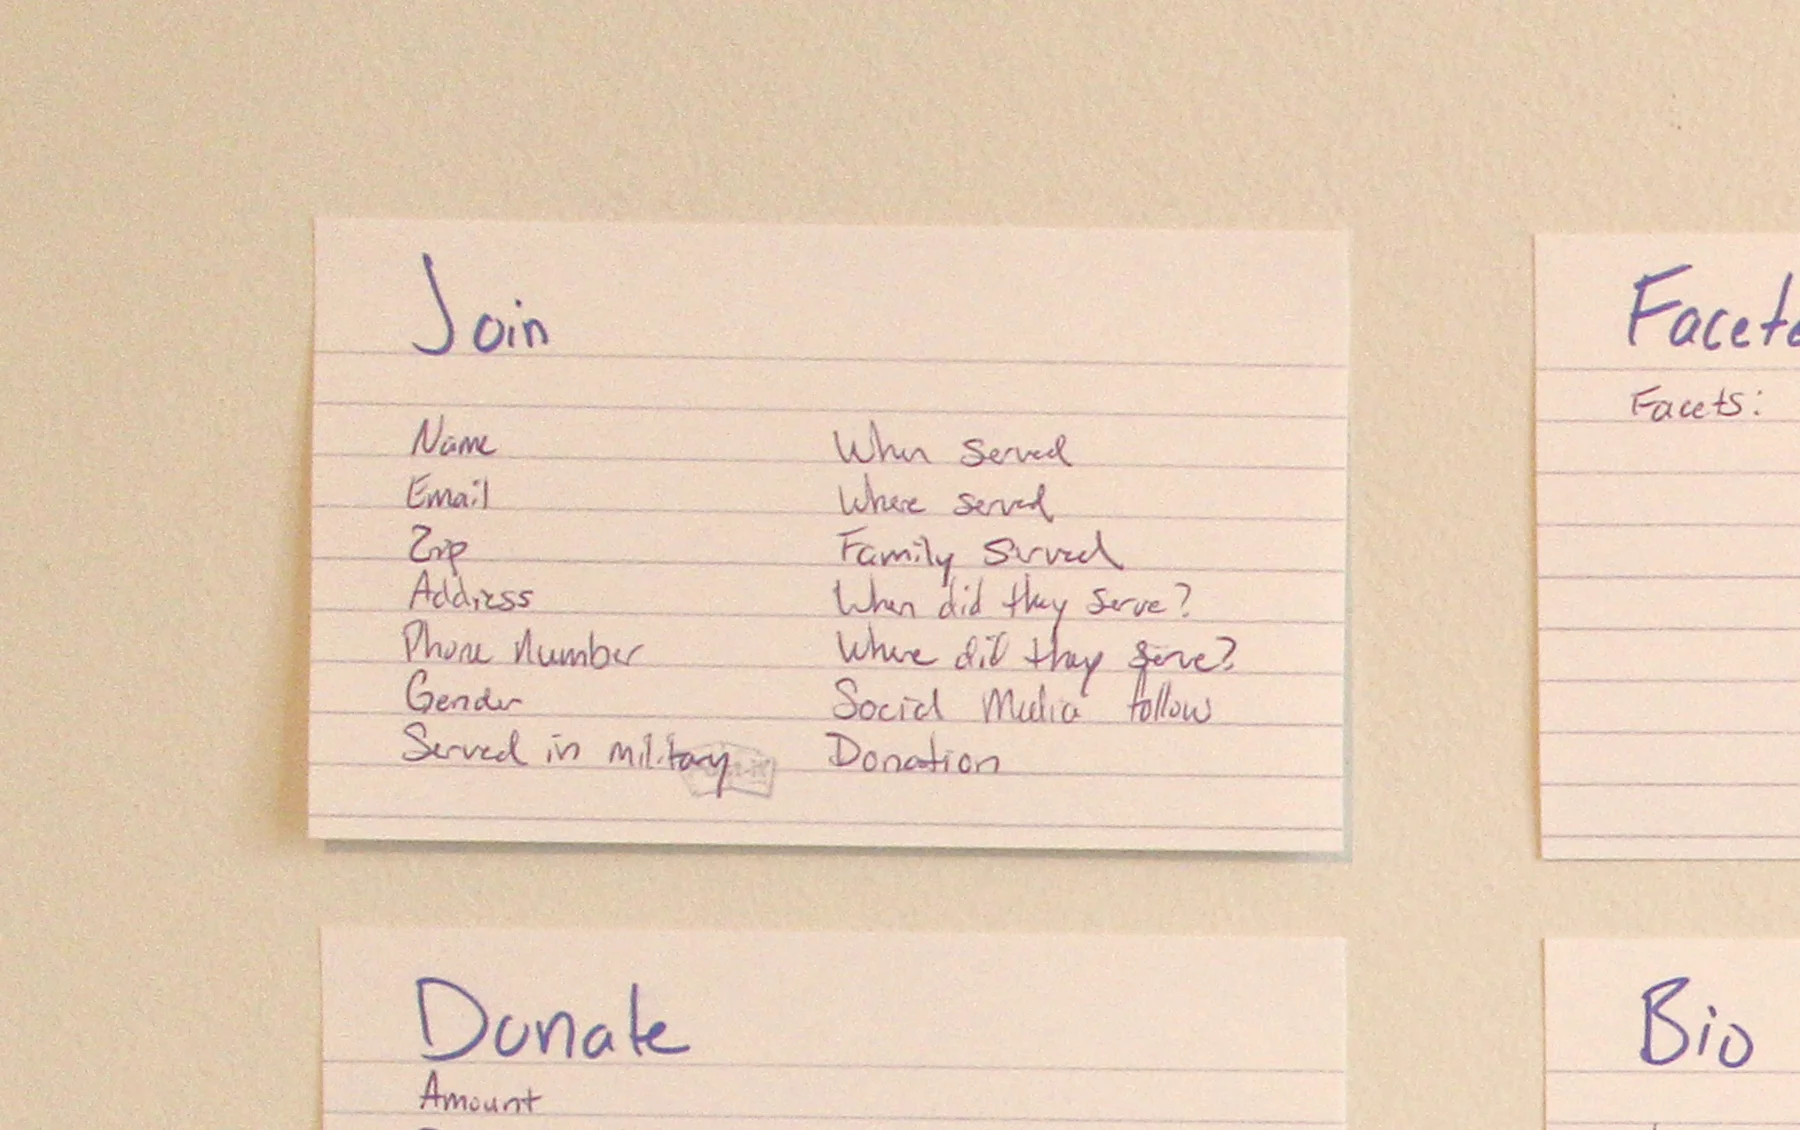 Join
Name
Email
Zip
Address
Phone Number
Gender
Served in military
When served
Where served
Family served
When did they serve?
Where did they serve?
Social Media follow
Donation
Facets:
Donate
Amount
Bio